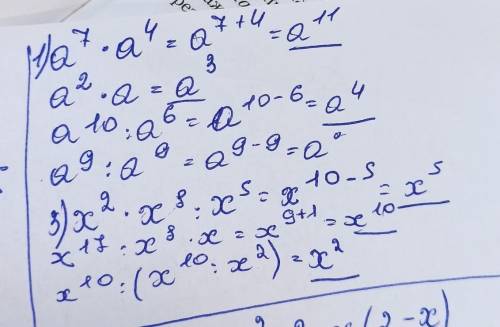 1) a⁷ · a⁴ = a⁷⁺⁴ = a¹¹
a² · a = a³
a¹⁰ : a⁶ = a¹⁰⁻⁶ = a⁴
a⁹ : a⁹ = a⁹⁻⁹ = a⁰
3) x² · x⁸ : x⁵ = x¹⁰⁻⁵ = x⁵
x¹⁷ : x⁸ · x = x⁹⁺¹ = x¹⁰
x¹⁰ : (x¹⁰ : x²) = x²
(2-x)